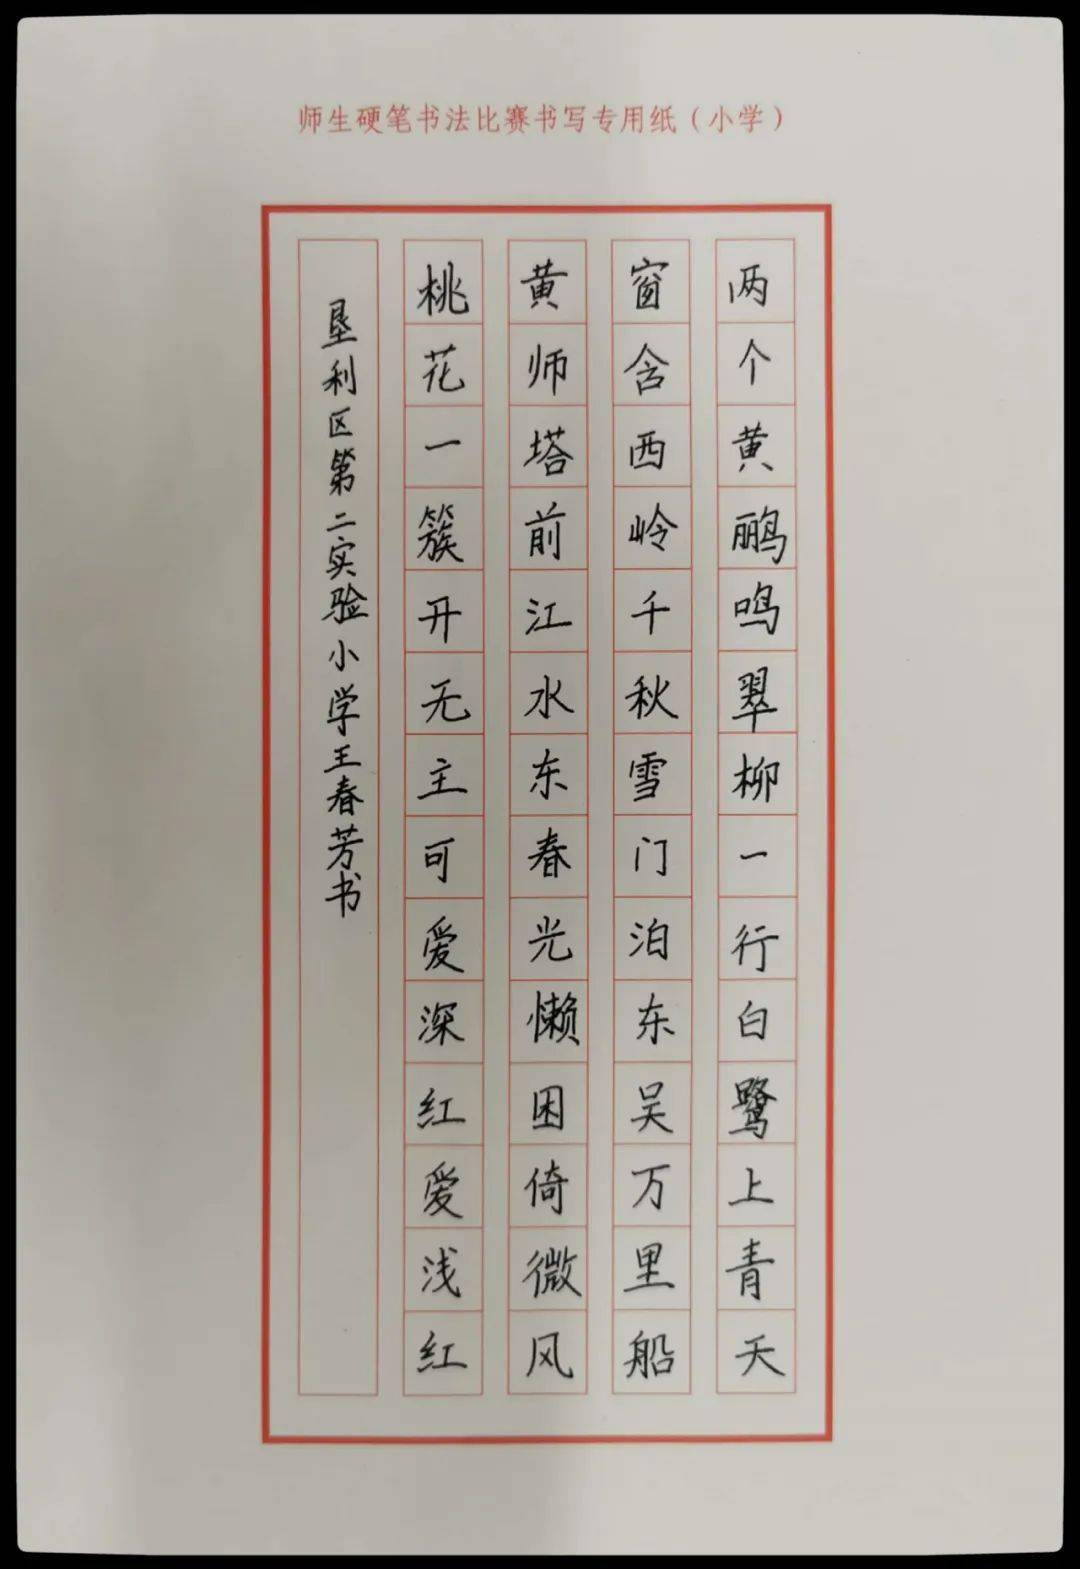 师生硬笔书法比赛书写专用纸（小学）
两个黄鹂鸣翠柳一行白鹭上青天
窗含西岭千秋雪门泊东吴万里船
黄师塔前江水东春光懒困倚微风
桃花一簇开无主可爱深红爱浅红
垦利区第二实验小学王春芳书